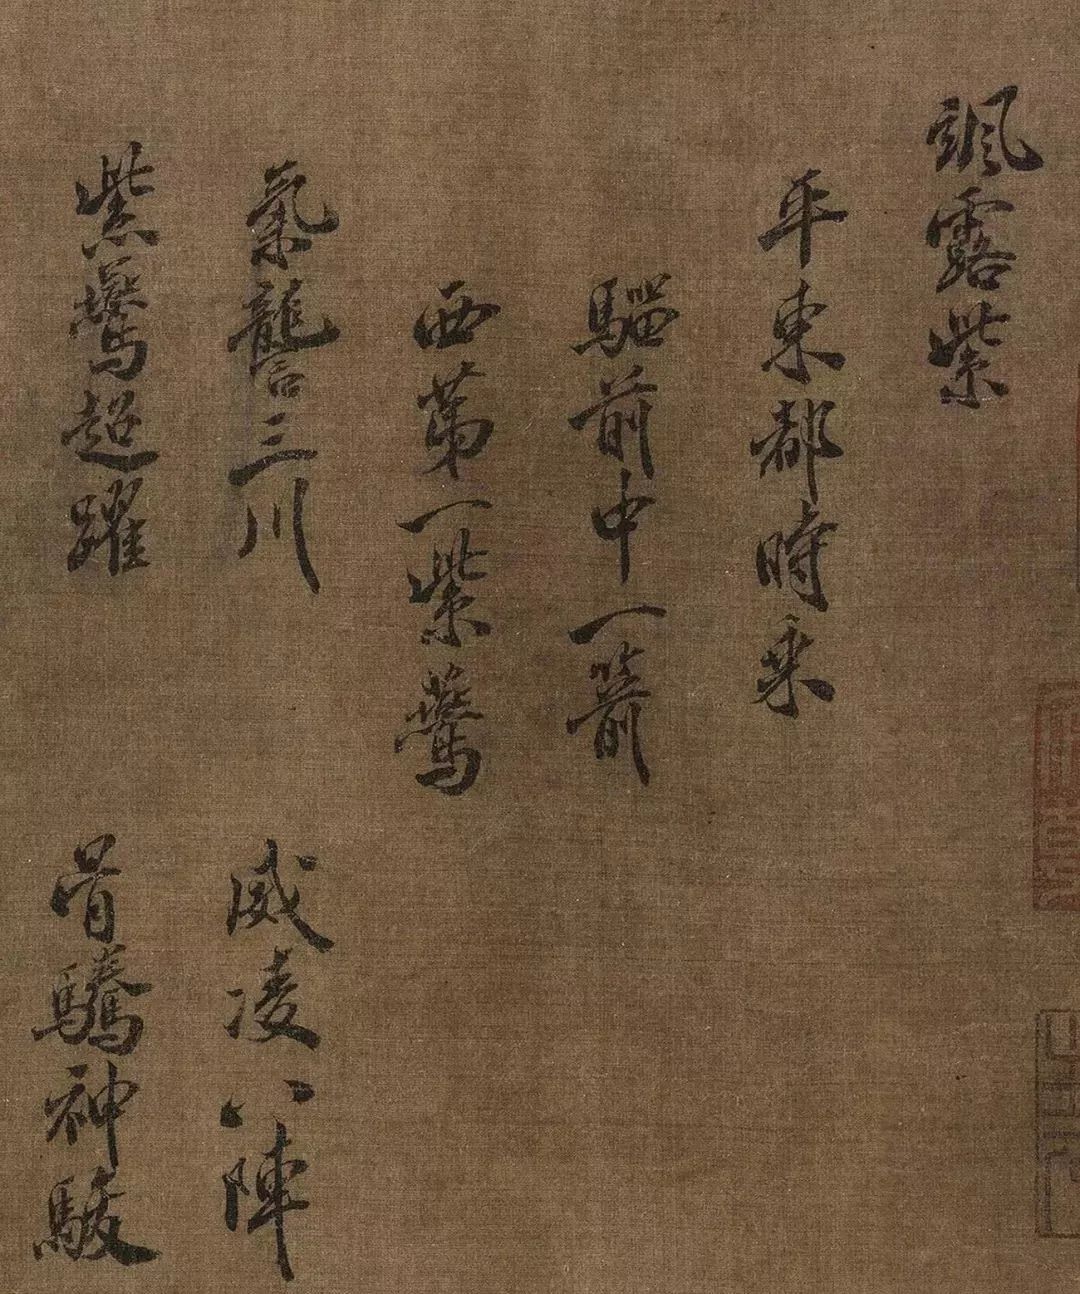 紫鷰超躍 骨驣神駿
氣讋三川 威凌八陣
西第一紫鷰
騮前中一箭
平東都時乘
颯露紫